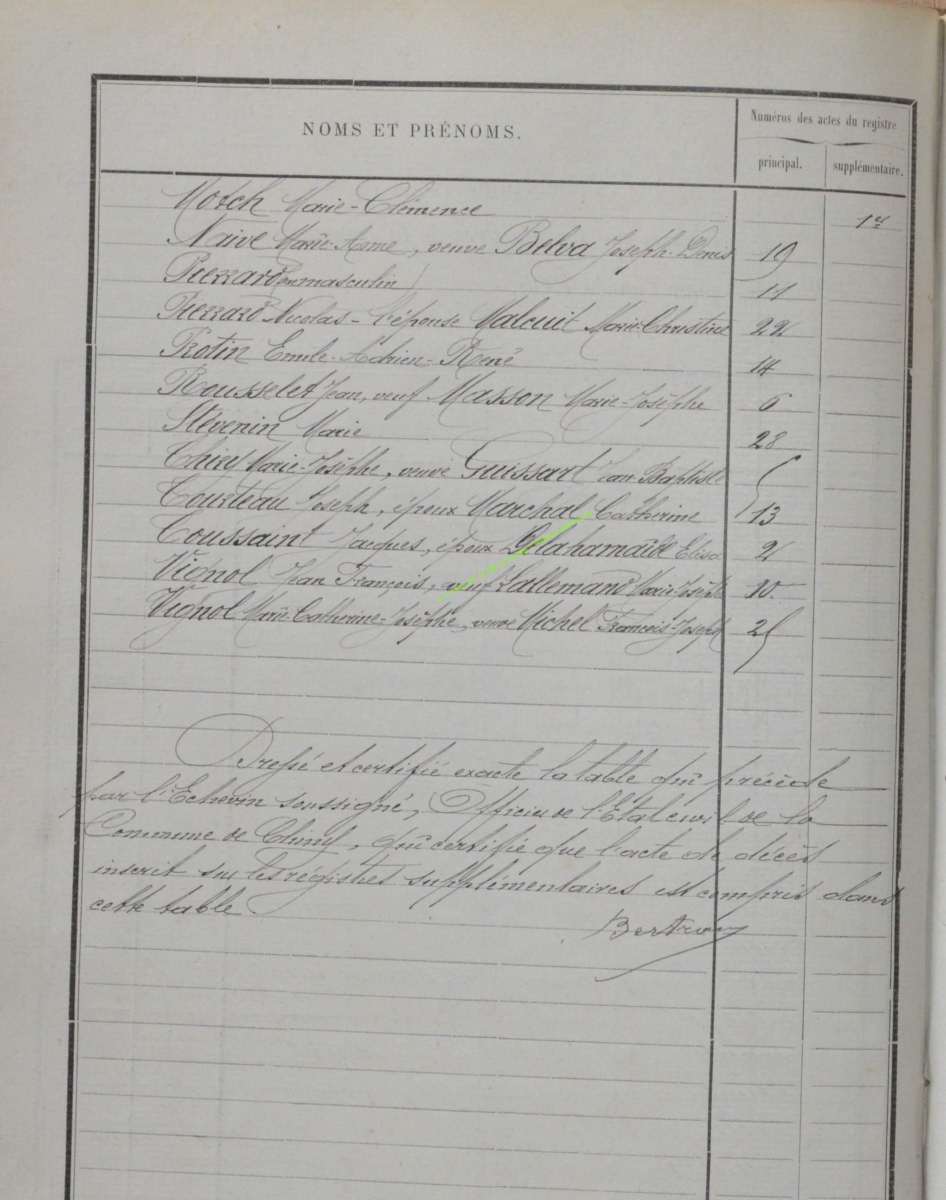 NOMS ET PRÉNOMS.
Numéros des actes du registre
principal. supplémentaire.
Motch Marie-Clémence 1er
Naive Marie-Anne, veuve Belva Joseph-Denis 19
Pierrard (masculin) 11
Pierrard Nicolas - l'épouse Malcuit Marie-Christine 22
Protin Emile-Adrien-René 14
Rousselet Jean, veuf Masson Marie-Josèphe 6
Stévenin Marie 28
Thiry Marie-Josèphe, veuve Guissart Jean Baptiste 5
Tourteau Joseph, époux Marchal Catherine 13
Toussaint Jacques, époux Delahamaide Elisa 2
Vignol Jean François, veuf Lallemand Marie-Josèph 10
Vignol Marie Catherine-Josèphe, veuve Michel François-Joseph 25
Dressé et certifié exacte la table qui précède
par l'Echevin soussigné, Officier de l'Etat civil de la
Commune de Chiny, qui certifie que l'acte de décès
inscrit sur les registres supplémentaires est compris dans
cette table